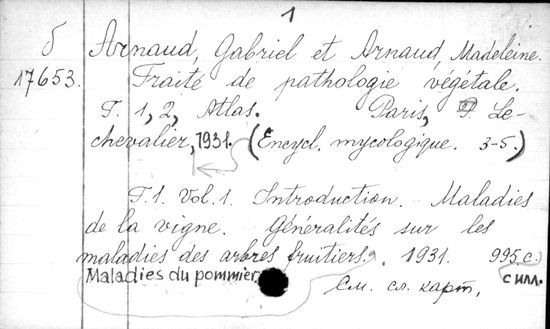 1
б
17653.
Arnaud, Gabriel et Arnaud, Madeleine.
Traité de pathologie végétale.
T. 1, 2, Atlas. Paris, P. Le-
chevalier, 1931. (Encycl. mycologique. 3-5.)
T.1. Vol. 1. Introduction. Maladies
de la vigne. Généralités sur les
maladies des arbres fruitiers. 1931. 995 с.)
Maladies du pommier. с илл.
См. сл. карт.